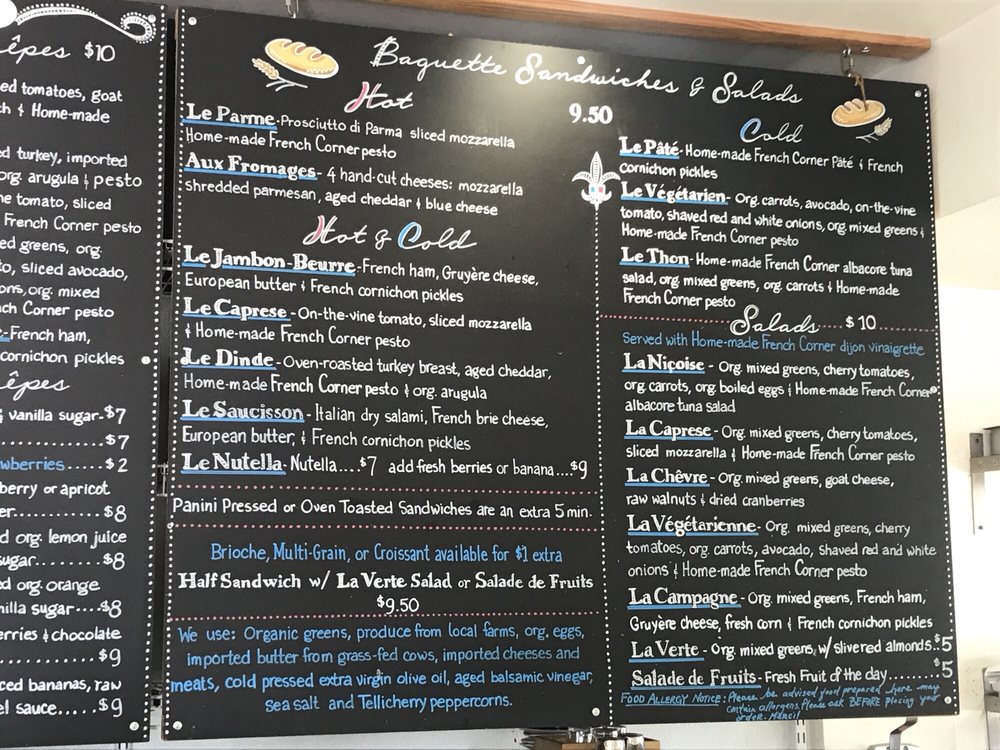 êpes $10
ed tomatoes, goat
h & Home-made
ed turkey, imported
org. arugula & pesto
ne tomato, sliced
French Corner pesto
ed greens, org.
to, sliced avocado,
ons, org. mixed
ch Corner pesto
-French ham,
cornichon pickles
êpes
, vanilla sugar-$7
..........$7
wberries.....$2
berry or apricot
er.............$8
d org. lemon juice
sugar........$8
ed org. orange
nilla sugar....$8
erries & chocolate
............$9
ced bananas, raw
el sauce.....$9
Baguette Sandwiches & Salads
Hot
9.50
Le Parme-Prosciutto di Parma sliced mozzarella
Home-made French Corner pesto
Aux Fromages- 4 hand-cut cheeses: mozzarella
shredded parmesan, aged cheddar & blue cheese
Hot & Cold
Le Jambon-Beurre-French ham, Gruyère cheese,
European butter & French cornichon pickles
Le Caprese-On-the-vine tomato, sliced mozzarella
& Home-made French Corner pesto
Le Dinde-Oven-roasted turkey breast, aged cheddar,
Home-made French Corner pesto & org. arugula
Le Saucisson- Italian dry salami, French brie cheese,
European butter, & French cornichon pickles
Le Nutella-Nutella....$7 add fresh berries or banana...$9
Panini Pressed or Oven Toasted Sandwiches are an extra 5 min.
Brioche, Multi-Grain, or Croissant available for $1 extra
Half Sandwich w/ La Verte Salad or Salade de Fruits
$9.50
We use: Organic greens, produce from local farms, org. eggs,
imported butter from grass-fed cows, imported cheeses and
meats, cold pressed extra virgin olive oil, aged balsamic vinegar,
sea salt and Tellicherry peppercorns.
Cold
Le Pâté-Home-made French Corner Pâté & French
cornichon pickles
Le Végétarien- Org. carrots, avocado, on-the-vine
tomato, shaved red and white onions, org. mixed greens &
Home-made French Corner pesto
Le Thon-Home-made French Corner albacore tuna
salad, org. mixed greens, org. carrots & Home-made
French Corner pesto
Salads....$10
Served with Home-made French Corner dijon vinaigrette
La Niçoise - Org. mixed greens, cherry tomatoes,
org. carrots, org. boiled eggs & Home-made French Corner
albacore tuna salad
La Caprese-Org. mixed greens, cherry tomatoes,
sliced mozzarella & Home-made French Corner pesto
La Chèvre-Org. mixed greens, goat cheese,
raw walnuts & dried cranberries
La Végétarienne-Org. mixed greens, cherry
tomatoes, org. carrots, avocado, shaved red and white
onions & Home-made French Corner pesto
La Campagne-Org. mixed greens, French ham,
Gruyère cheese, fresh corn & French cornichon pickles
La Verte - Org. mixed greens, w/ slivered almonds..$5
Salade de Fruits-Fresh Fruit of the day........$5
FOOD ALLERGY NOTICE: Please be advised food prepared here may
contain allergens. Please ask BEFORE placing your
order. Merci!